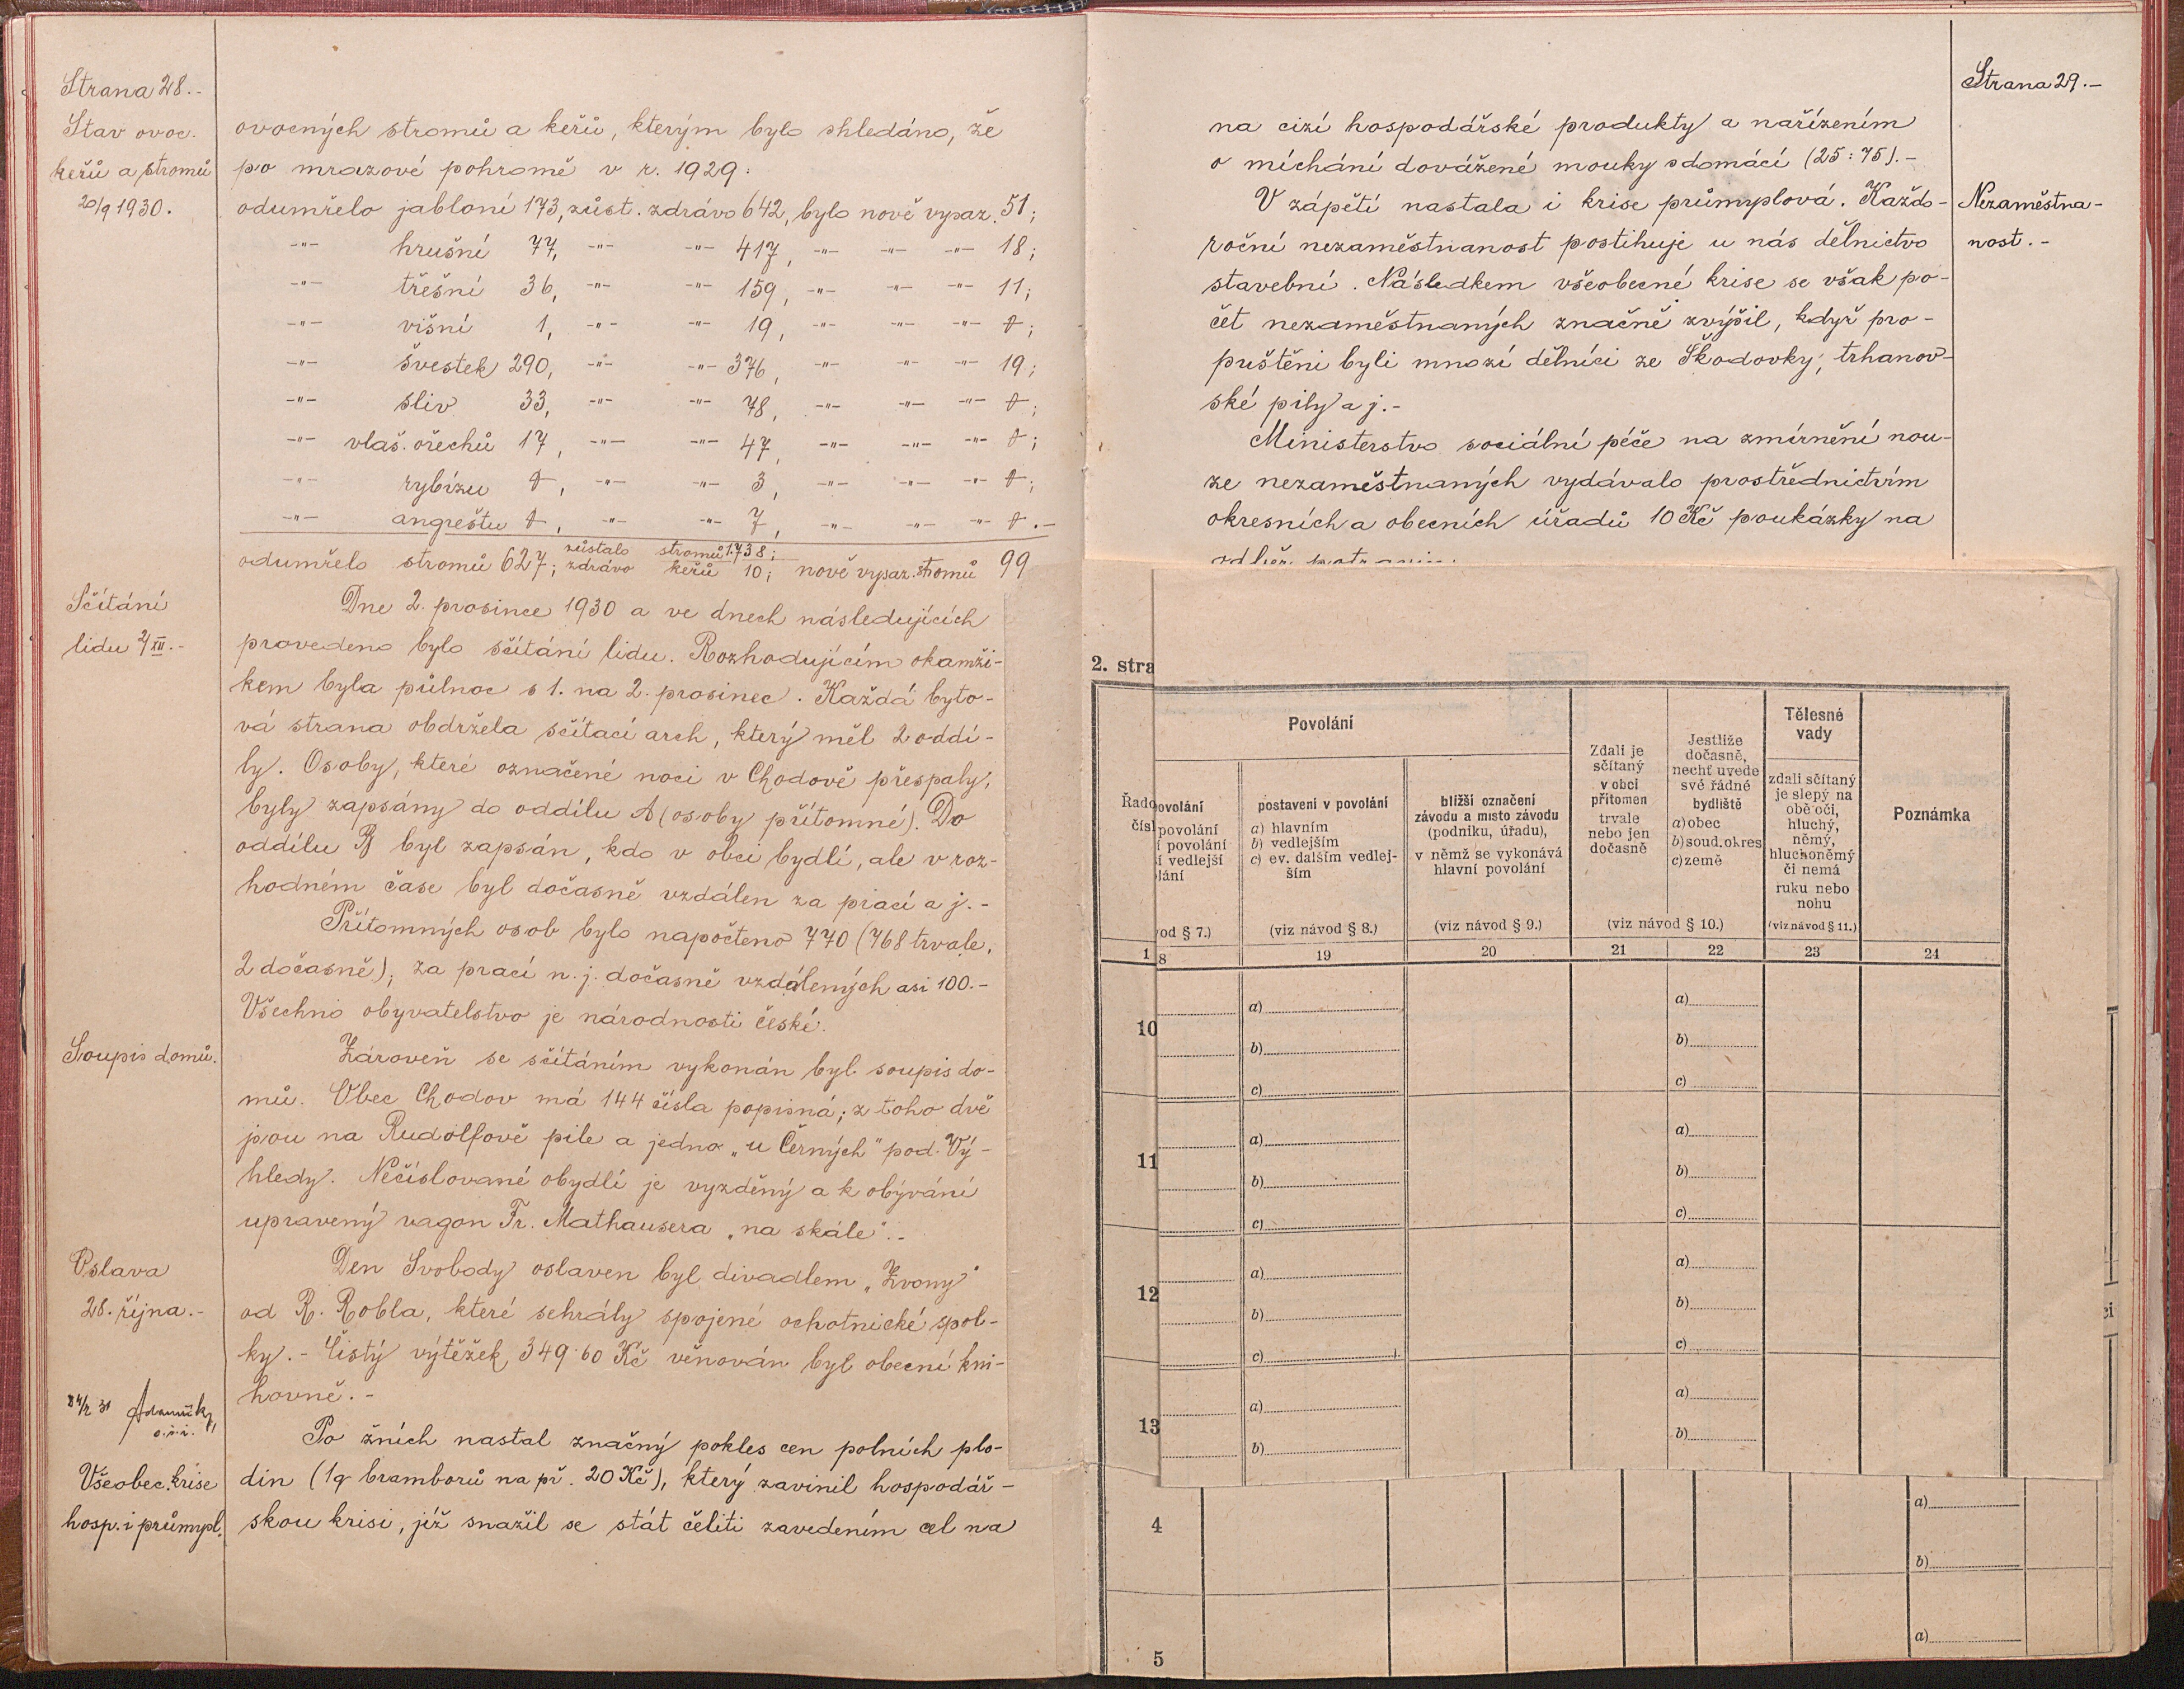 Strana 28.-
Stav ovoc.
keřů a stromů
20/9 1930.
ovocných stromů a keřů, kterým bylo shledáno, že
po mrazové pohromě v r. 1929:
odumřelo jabloní 173, zůst. zdrávo 642, bylo nově vysaz. 51;
-"- hrušní 77, -"- -"- 417, -"- -"- -"- 18;
-"- třešní 36, -"- -"- 159, -"- -"- -"- 11;
-"- višní 1, -"- -"- 19, -"- -"- -"- 0;
-"- švestek 290, -"- -"- 376, -"- -"- -"- 19;
-"- sliv 33, -"- -"- 78, -"- -"- -"- 0;
-"- vlaš. ořechů 17, -"- -"- 47, -"- -"- -"- 0;
-"- rybízu 0, -"- -"- 3, -"- -"- -"- 0;
-"- angreštu 0, -"- -"- 7, -"- -"- -"- 0.-
odumřelo stromů 627; zůstalo zdrávo stromů 1.738; keřů 10; nově vysaz. stromů 99
Sčítání
lidu 2/XII.-
Dne 2. prosince 1930 a ve dnech následujících
provedeno bylo sčítání lidu. Rozhodujícím okamži-
kem byla půlnoc s 1. na 2. prosinec. Každá byto-
vá strana obdržela sčítací arch, který měl 2 oddí-
ly. Osoby, které označené noci v Chodově přespaly,
byly zapsány do oddílu A (osoby přítomné). Do
oddílu B byl zapsán, kdo v obci bydlí, ale v roz-
hodném čase byl dočasně vzdálen za prací a j.-
Přítomných osob bylo napočteno 770 (768 trvale,
2 dočasně); za prací n. j. dočasně vzdálených asi 100.-
Všechno obyvatelstvo je národnosti české.
Soupis domů.
Zároveň se sčítáním vykonán byl soupis do-
mů. Obec Chodov má 144 čísla popisná; z toho dvě
jsou na Rudolfově pile a jedno „u Černých" pod Vý-
hledy. Nečíslované obydlí je vyzděný a k obývání
upravený vagon Fr. Mathausera „na skále".-
Oslava
28. října.-
Den Svobody oslaven byl divadlem „Zvony"
od R. Robla, které sehrály spojené ochotnické spol-
ky.- Čistý výtěžek 349·60 Kč věnován byl obecní kni-
hovně.-
Všeobec. krise
hosp. i průmysl.
Po žních nastal značný pokles cen polních plo-
din (1q bramborů na př. 20 Kč), který zavinil hospodář-
skou krisi, jíž snažil se stát čeliti zavedením cel na
Strana 29.-
na cizí hospodářské produkty a nařízením
o míchání dovážené mouky s domácí (25:75).-
Nezaměstna-
nost.-
V zápětí nastala i krise průmyslová. Každo-
roční nezaměstnanost postihuje u nás dělnictvo
stavební. Následkem všeobecné krise se však po-
čet nezaměstnaných značně zvýšil, když pro-
puštěni byli mnozí dělníci ze Škodovky, trhanov-
ské pily a j.-
Ministerstvo sociální péče na zmírnění nou-
ze nezaměstnaných vydávalo prostřednictvím
okresních a obecních úřadů 10 Kč poukázky na
2. stra
Řado
čísl
Povolání
ovolání
povolání
í povolání
í vedlejší
lání
od § 7.)
postavení v povolání
a) hlavním
b) vedlejším
c) ev. dalším vedlej-
ším
(viz návod § 8.)
bližší označení
závodu a místo závodu
(podniku, úřadu),
v němž se vykonává
hlavní povolání
(viz návod § 9.)
Zdali je
sčítaný
v obci
přítomen
trvale
nebo jen
dočasně
Jestliže
dočasně,
nechť uvede
své řádné
bydliště
a) obec
b) soud. okres
c) země
(viz návod § 10.)
Tělesné
vady
zdali sčítaný
je slepý na
obě oči,
hluchý,
němý,
hluchoněmý
či nemá
ruku nebo
nohu
(viz návod § 11.)
Poznámka
1 8 19 20 21 22 23 24
10
a) a)
b) b)
c) c)
11
a) a)
b) b)
c) c)
12
a) a)
b) b)
c) c)
13
a) a)
b) b)
4
a)
b)
5
a)